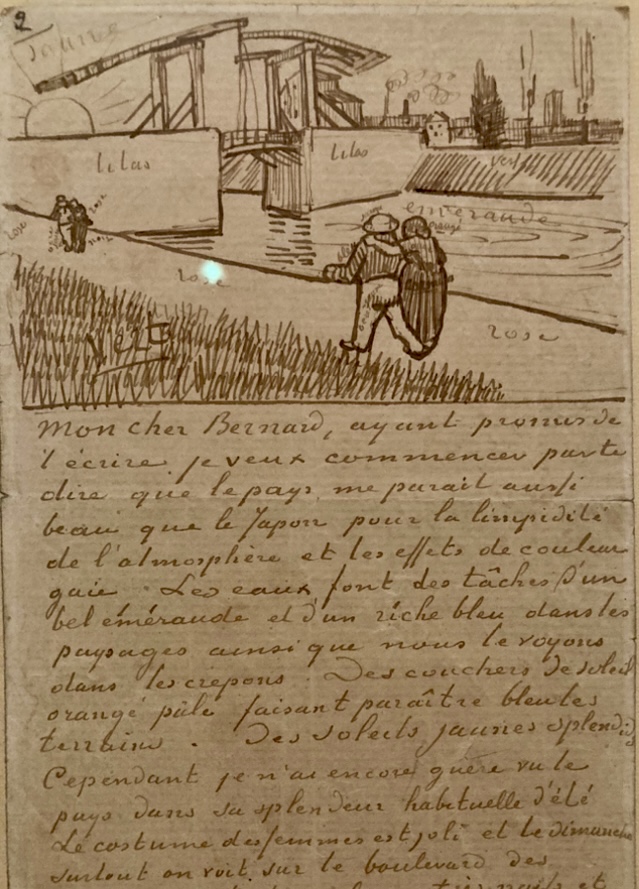 2
Jaune
lilas
lilas
vert
emeraude
rose
rose
rose
vert
Mon cher Bernard, ayant promis de
t'écrire je veux commencer par te
dire que le pays me parait aussi
beau que le Japon pour la limpidité
de l'atmosphère et les effets de couleur
gaie. Les eaux font des tâches d'un
bel éméraude et d'un riche bleu dans les
paysages ainsi que nous le voyons
dans les crepons. Des couchers de soleil
orangé pâle faisant paraître bleu les
terrains. Des soleils jaunes splendides
Cependant je n'ai encore guère vu le
pays dans sa splendeur habituelle d'été
Le costume des femmes est joli et le dimanche
surtout on voit sur le boulevard des